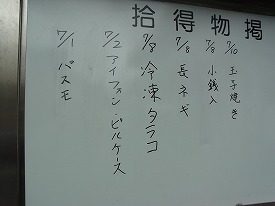 拾得物掲
7/10 玉子焼き
7/9 小銭入
7/8 長ネギ
7/8 冷凍タラコ
7/2 アイフォン・ビルケース
7/1 パスモ